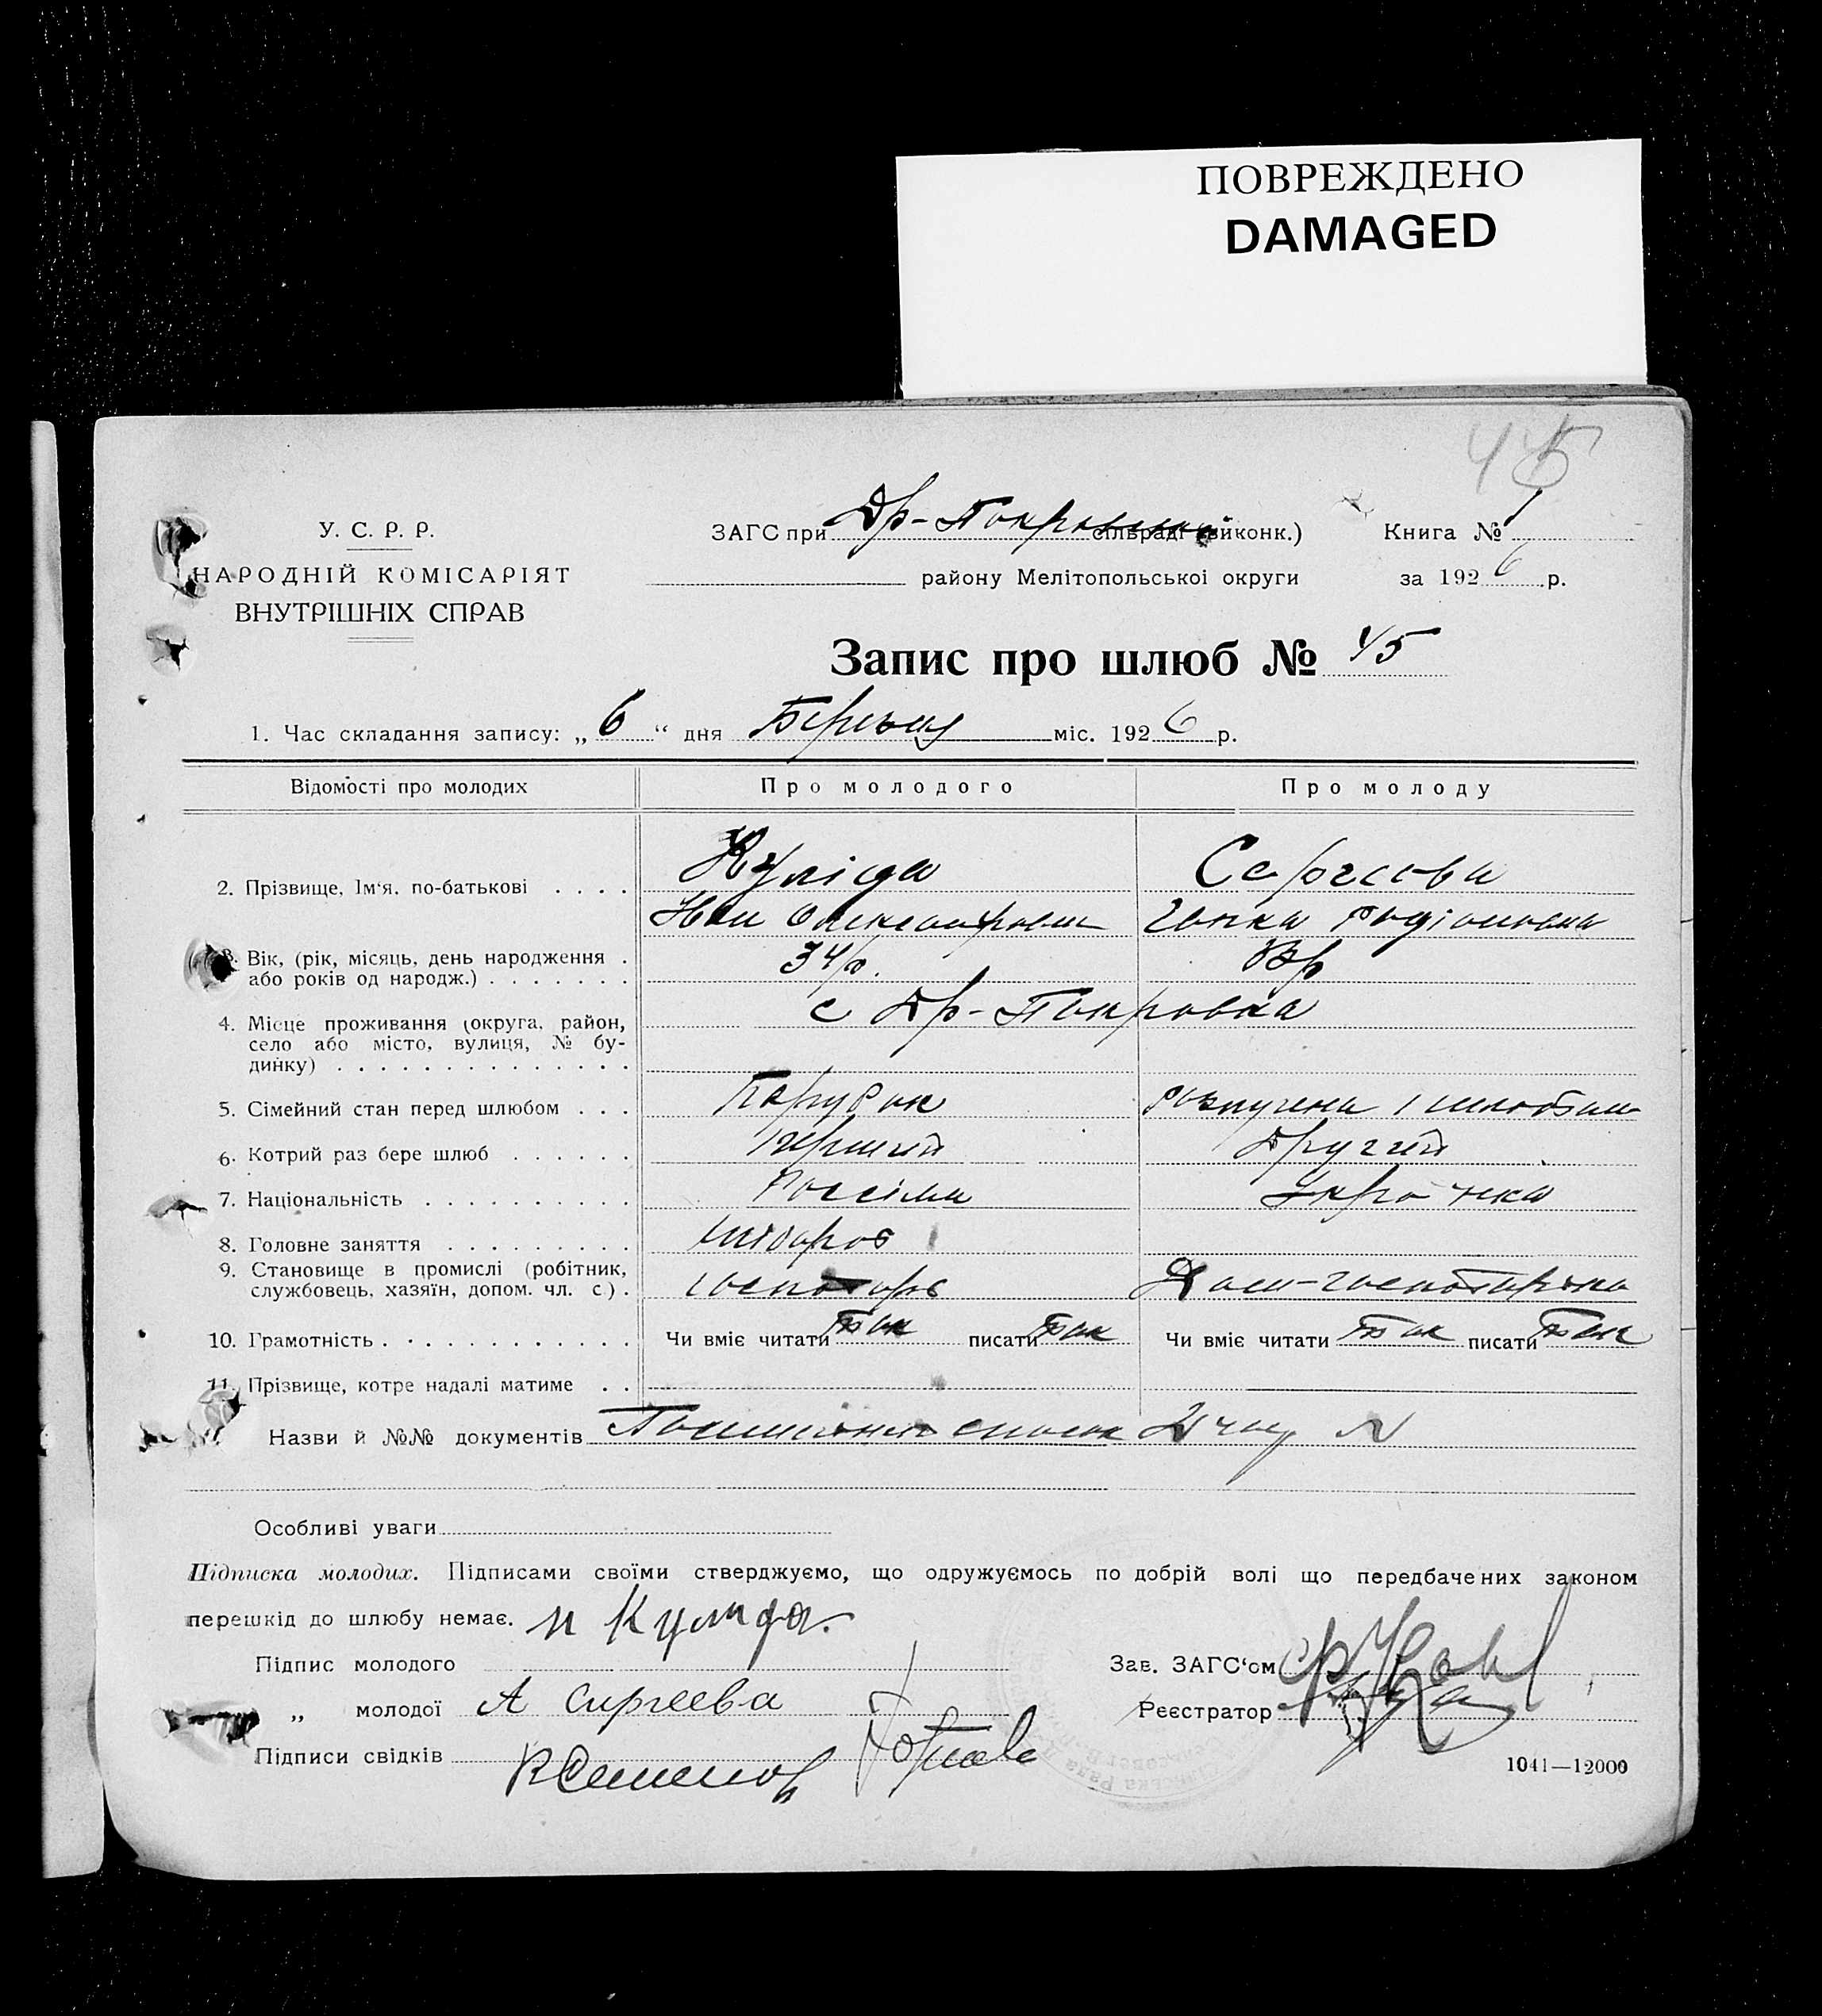 ПОВРЕЖДЕНО
DAMAGED
45
У. С. Р. Р.
НАРОДНІЙ КОМІСАРІЯТ
ВНУТРІШНІХ СПРАВ
ЗАГС при Др-Покровській сільраді (виконк.)
району Мелітопольської округи
Книга № 1
за 1926 р.
Запис про шлюб № 45
1. Час складання запису: „ 6 “ дня Березня міс. 1926 р.
Відомості про молодих Про молодого Про молоду
2. Прізвище, Ім‘я. по-батькові . . . . Куліда Сергєєва
Олександрович Ганка Родіоновна
3. Вік, (рік, місяць, день народження . 34 р.
або років од народж.) . . . . . . .
4. Місце проживання (округа, район, с Др-Покровка
село або місто, вулиця, № бу-
динку) . . . . . . . . . . . . . .
5. Сімейний стан перед шлюбом . . . Парубок
6. Котрий раз бере шлюб . . . . . . Перший Другий
7. Національність . . . . . . . . . . Укр-нка
8. Головне заняття . . . . . . . . . хлібороб
9. Становище в промислі (робітник, господарь Дом-господарька
службовець, хазяїн, допом. чл. с.) .
10. Грамотність . . . . . . . . . . . . Чи вміє читати Так писати Так Чи вміє читати Так писати Так
11. Прізвище, котре надалі матиме . .
Назви й №№ документів N
Особливі уваги
Підписка молодих. Підписами своїми стверджуємо, що одружуємось по добрій волі що передбачених законом
перешкід до шлюбу немає. и Кулида.
Підпис молодого
Зав. ЗАГС‘ом
„ молодої А Сиргеева
Реєстратор
Підписи свідків
1041—12000